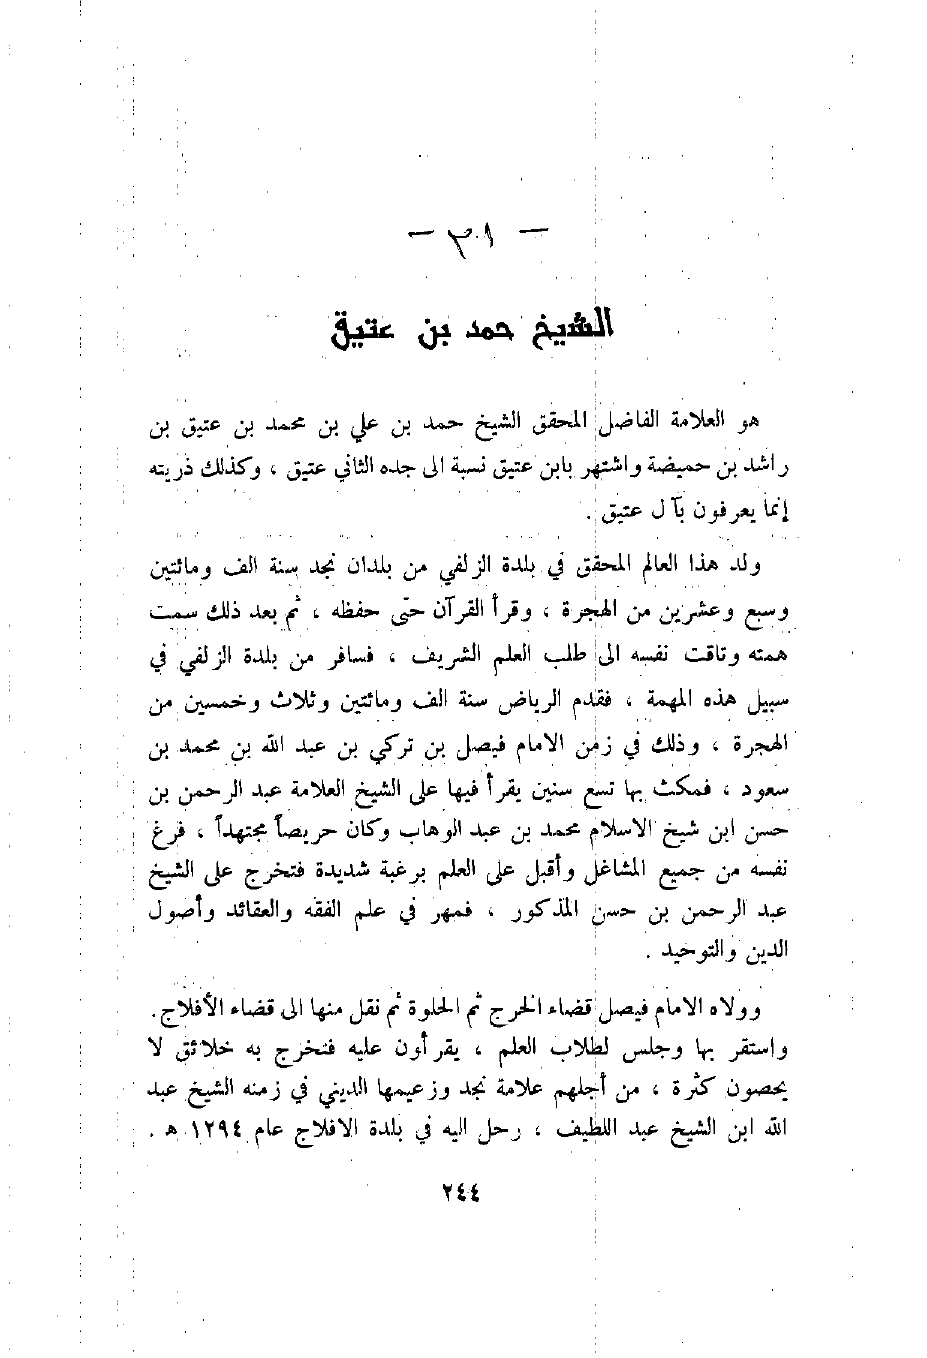 — ٣١ —
الشيخ حمد بن عتيق
هو العلامة الفاضل المحقق الشيخ حمد بن علي بن محمد بن عتيق بن
راشد بن حميضة واشتهر بابن عتيق نسبة الى جده الثاني عتيق ، وكذلك ذريته
إنما يعرفون بآل عتيق .
ولد هذا العالم المحقق في بلدة الزلفي من بلدان نجد سنة الف ومائتين
وسبع وعشرين من الهجرة ، وقرأ القرآن حتى حفظه ، ثم بعد ذلك سمت
همته وتاقت نفسه الى طلب العلم الشريف ، فسافر من بلدة الزلفي في
سبيل هذه المهمة ، فقدم الرياض سنة الف ومائتين وثلاث وخمسين من
الهجرة ، وذلك في زمن الامام فيصل بن تركي بن عبد الله بن محمد بن
سعود ، فمكث بها تسع سنين يقرأ فيها على الشيخ العلامة عبد الرحمن بن
حسن ابن شيخ الاسلام محمد بن عبد الوهاب وكان حريصاً مجتهداً ، فرغ
نفسه من جميع المشاغل وأقبل على العلم برغبة شديدة فتخرج على الشيخ
عبد الرحمن بن حسن المذكور ، فمهر في علم الفقه والعقائد وأصول
الدين والتوحيد .
وولاه الامام فيصل قضاء الخرج ثم الحلوة ثم نقل منها الى قضاء الأفلاج .
واستقر بها وجلس لطلاب العلم ، يقرأون عليه فتخرج به خلائق لا
يحصون كثرة ، من أجلهم علامة نجد وزعيمها الديني في زمنه الشيخ عبد
الله ابن الشيخ عبد اللطيف ، رحل اليه في بلدة الافلاج عام ١٢٩٤ هـ .
٢٤٤